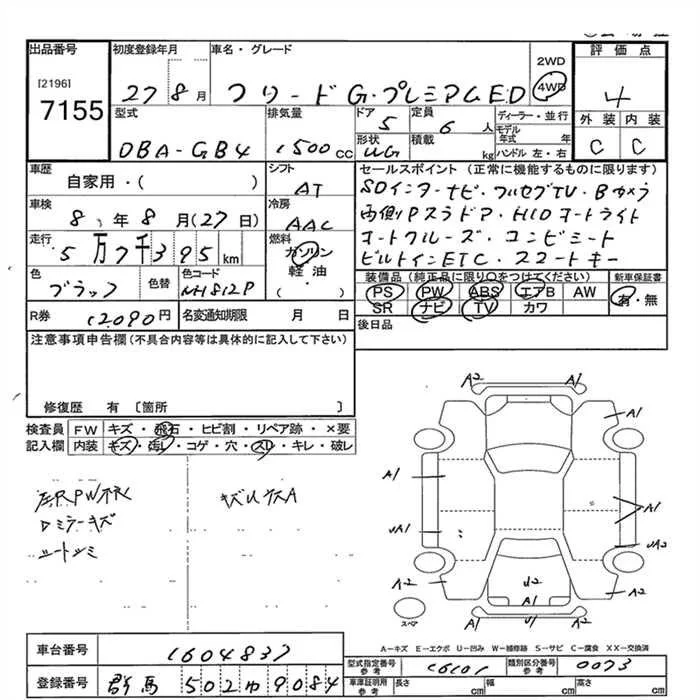 出品番号
[2196]
7155
初度登録年月
27 8月
車名・グレード
フリード G・プレミアムED
2WD
4WD
評価点
4
型式
DBA-GB4
排気量
1500cc
ドア
5
定員
6人
ディーラー・並行
モデル年式 年
ハンドル 左・右
形状
WG
積載
kg
外装
内装
C
C
車歴
自家用・( )
シフト
AT
車検
8年8月(27日)
冷房
AAC
走行
5万7千395km
燃料
ガソリン
軽油
( )
色
ブラック
色替
色コード
NH812P
R券
12,090円
名変通知期限 月 日
セールスポイント(正常に機能するものに限ります)
SDインターナビ・フルセグTV・Bカメラ
両側Pスラドア・HIDオートライト
オートクルーズ・コンビシート
ビルトインETC・スマートキー
装備品(純正品に限り○をつけてください)
PS PW ABS エアB AW
SR ナビ TV カワ
新車保証書
有・無
後日品
注意事項申告欄(不具合内容等は具体的に記入して下さい)
修復歴 有 〔箇所 〕
検査員記入欄
FW キズ・飛石・ヒビ割・リペア跡・×要
内装 キズ・汚レ・コゲ・穴・スリ・キレ・破レ
ドミラーキズ
A2
A1
A1
A1
A1
UA1
UA2
A2
A2
U2
A1
U1
A1
スペア
A-キズ E-エクボ U-凹み W-補修跡 S-サビ C-腐食 XX-交換済
車台番号
1604837
登録番号
群馬 502ゆ9084
型式指定番号
参考
16101
類別区分番号
参考
0073
車庫証明用
参考
長さ cm
幅 cm
高さ cm